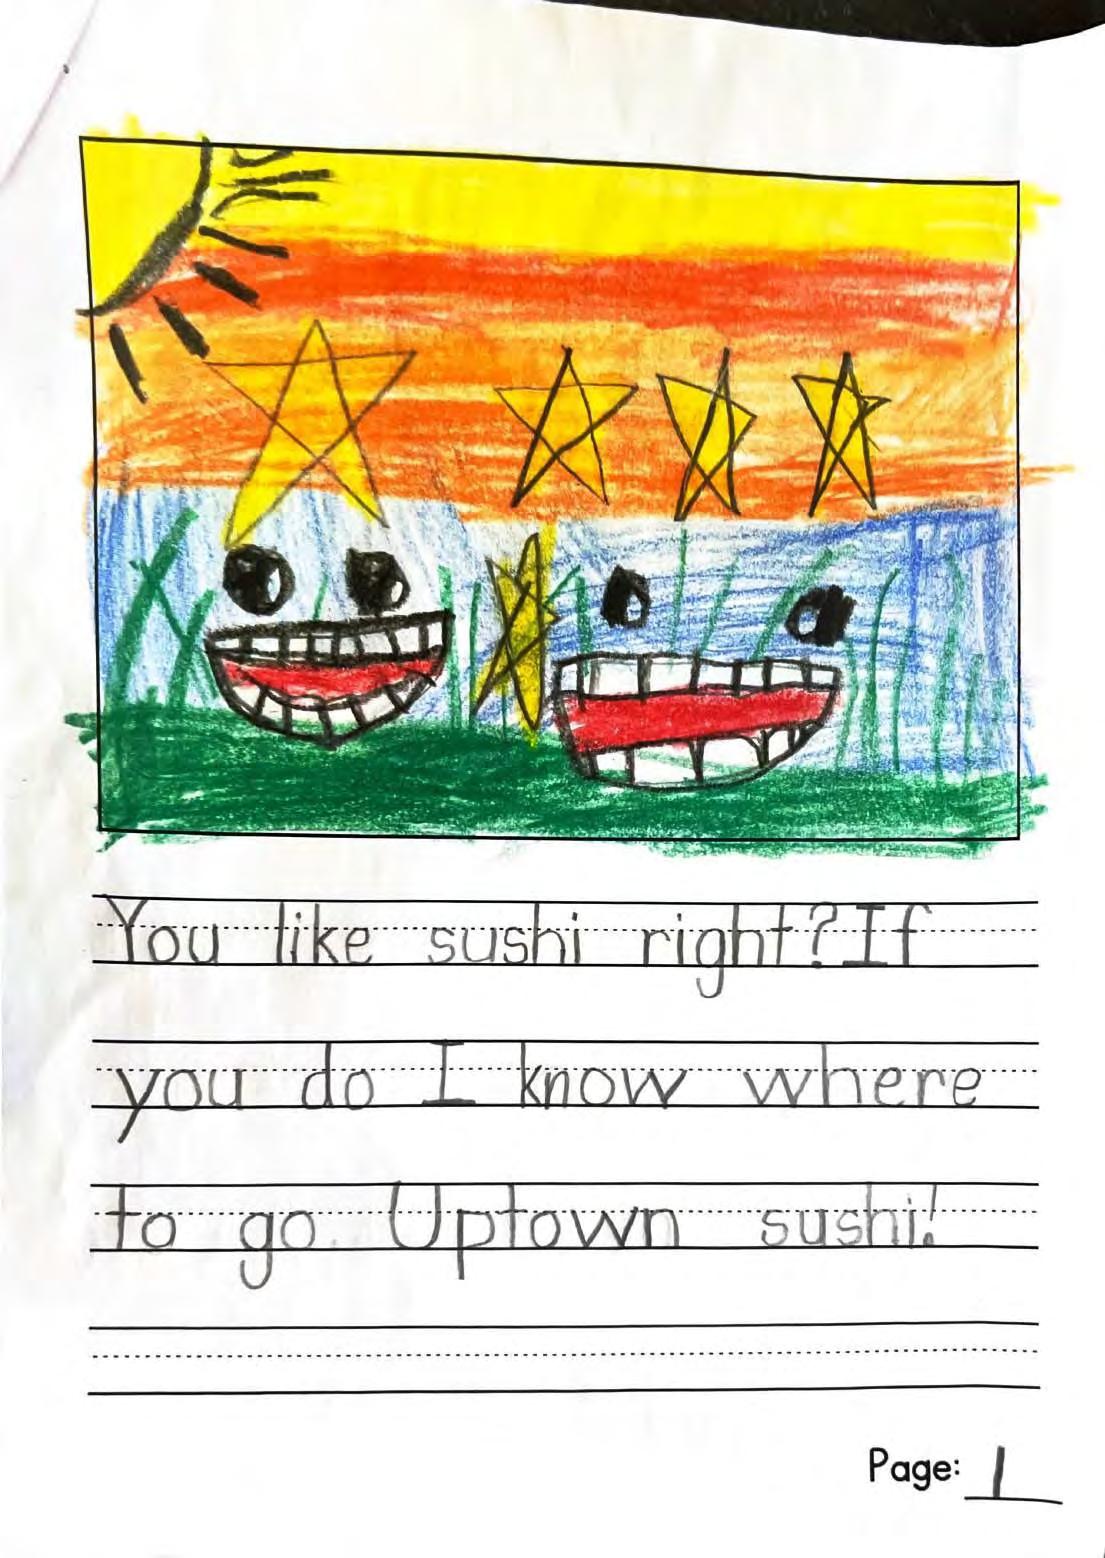 You like sushi right? If
you do I know where
to go. Uptown sushi!
Page: 1